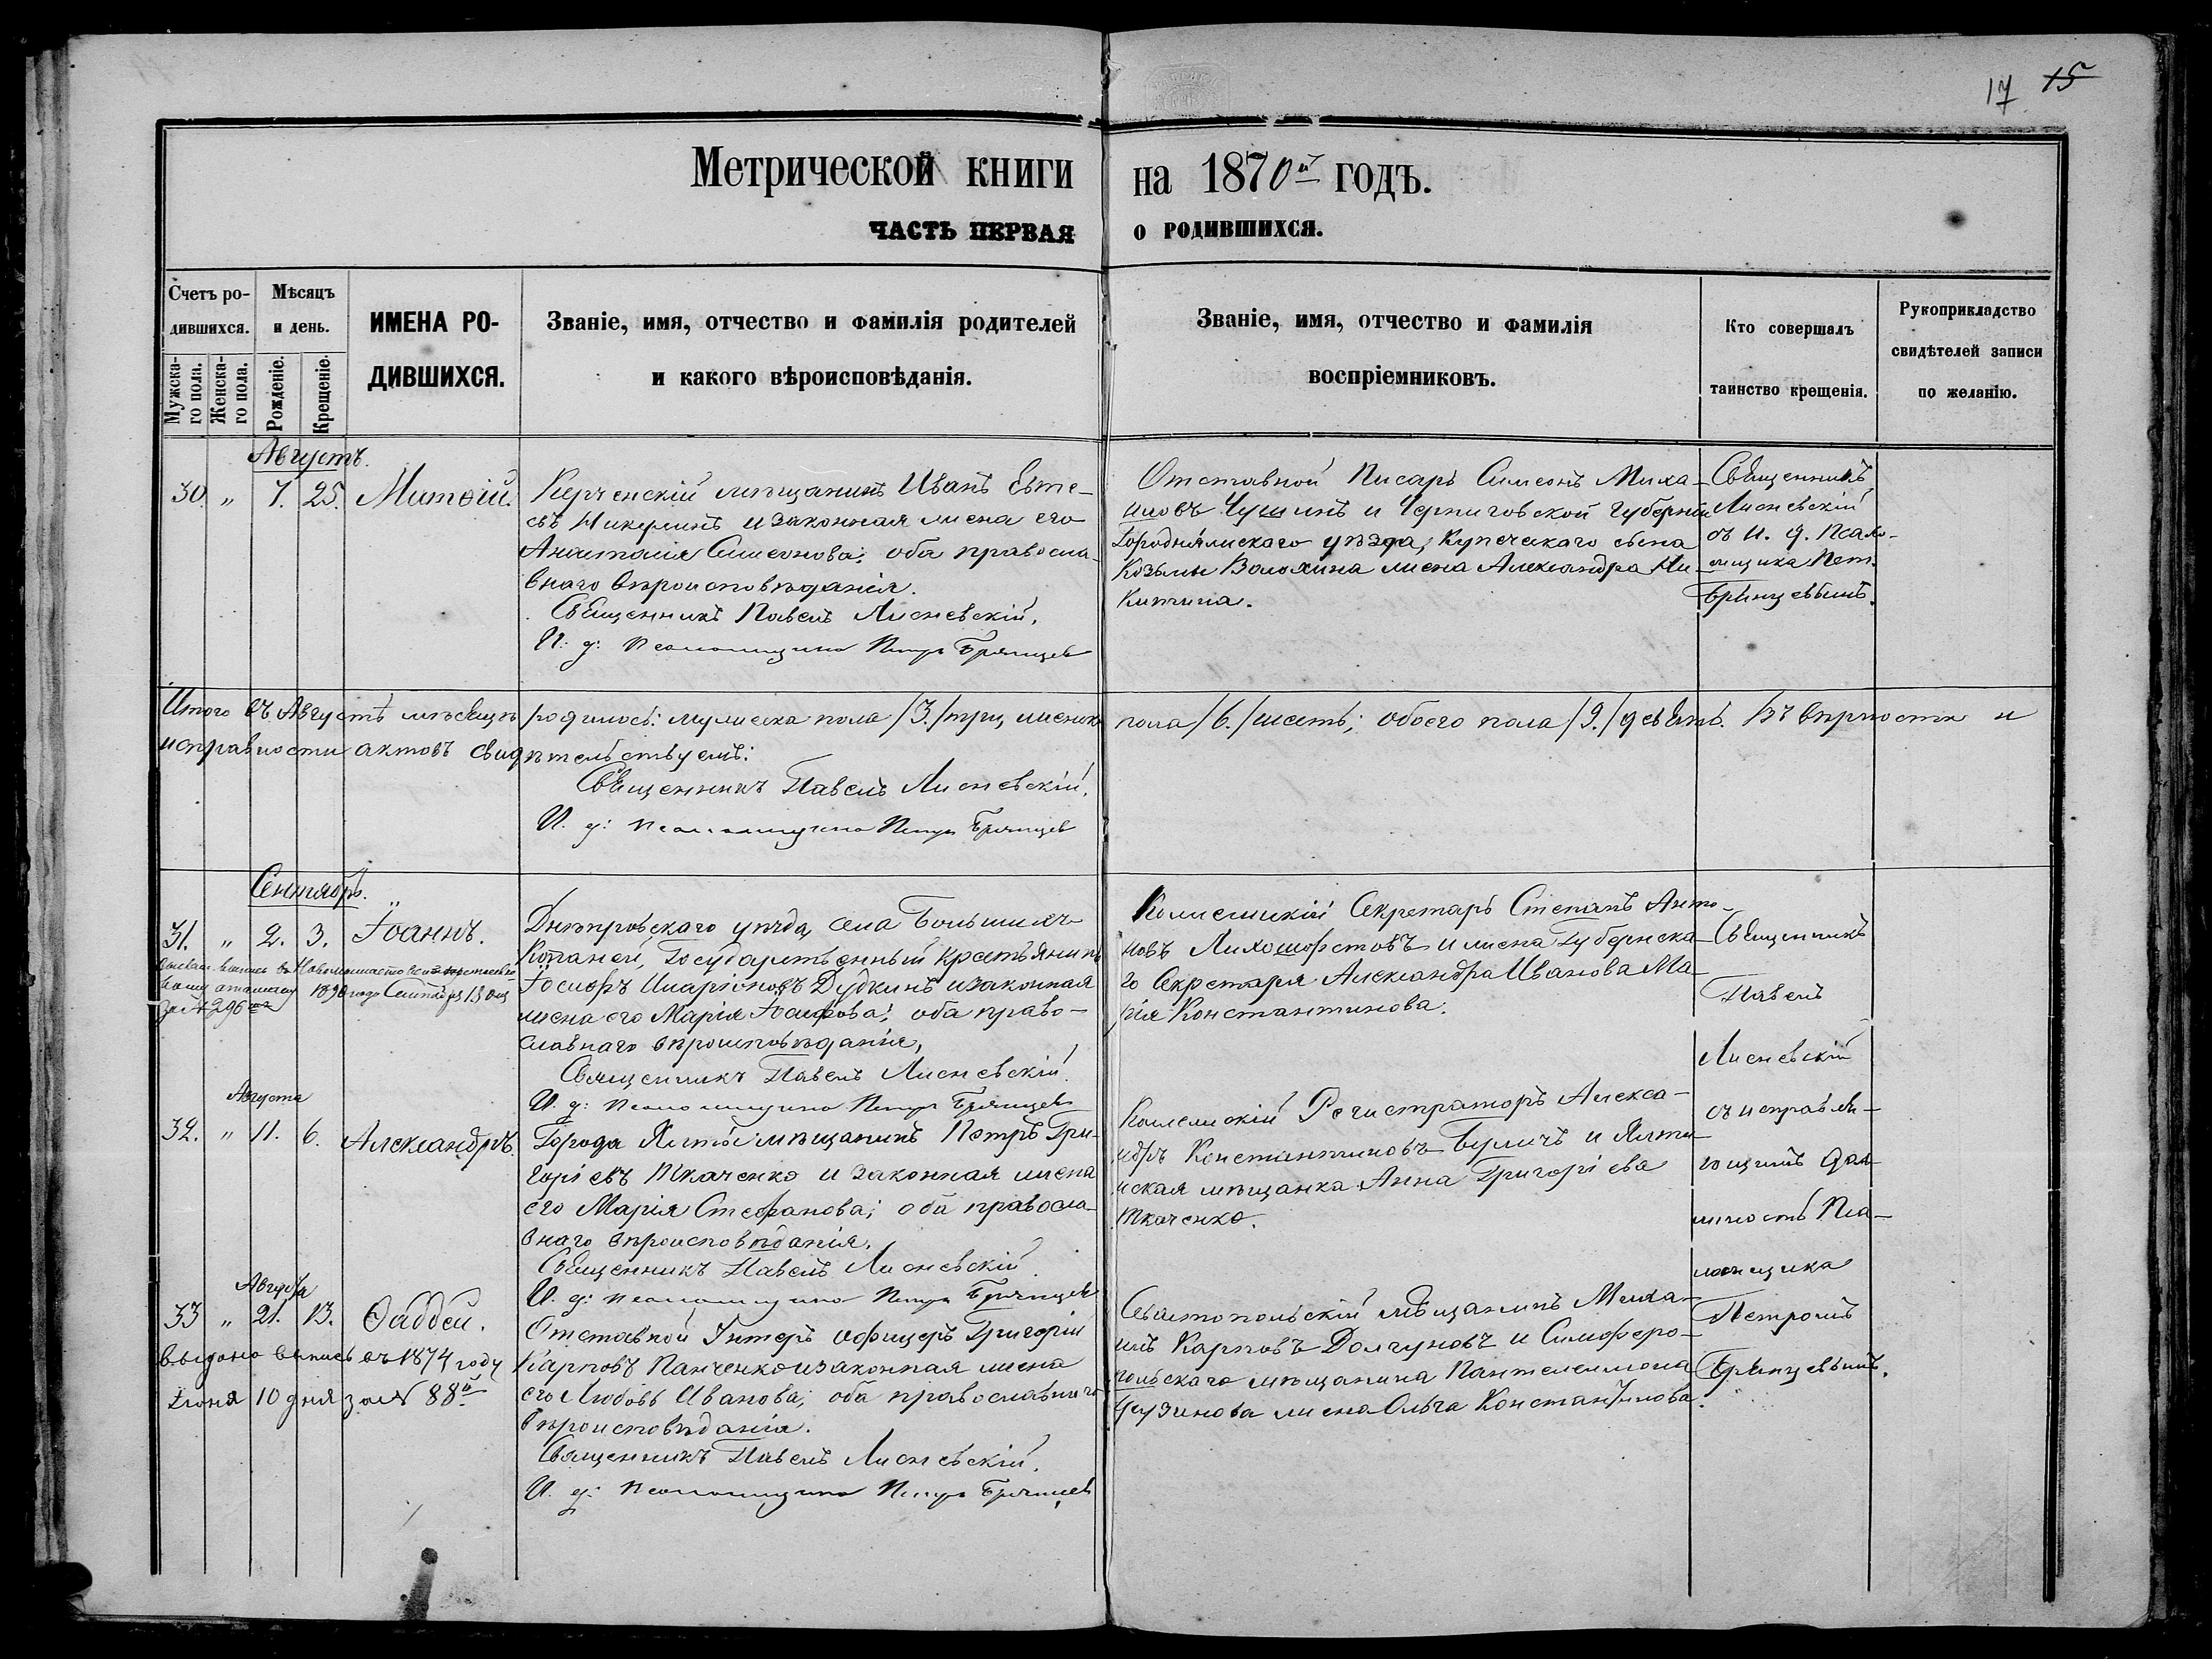 17 15
Метрической книги на 1870й годъ.
ЧАСТЬ ПЕРВАЯ о родившихся.
Счетъ родившихся.
Мужскаго пола.
Женскаго пола.
Мѣсяцъ и день.
Рожденіе.
Крещеніе.
ИМЕНА РОДИВШИХСЯ.
Званіе, имя, отчество и фамилія родителей
и какого вѣроисповѣданія.
Званіе, имя, отчество и фамилія
воспріемниковъ.
Кто совершалъ
таинство крещенія.
Рукоприкладство
свидѣтелей записи
по желанію.
Августъ.
30. " 7. 25. Митѳій.
Керченскій мѣщанинъ Иванъ Евте-
евъ и законная жена его
Анастасія Симеонова; оба правосла-
внаго вѣроисповѣданія.
Священникъ Павелъ Лисневскій.
И. д: псаломщика Петръ Брянцев
Отставной Писарь Симеонъ Миха-
иловъ Чушинъ и Черниговской губерніи
Городнянскаго уѣзда, Купеческаго сына
Козьмы Волохина жена Александра Ни-
китина.
Священникъ
Лисневскій
съ И. д. Псало-
мщика Пет.
Брянцевымъ.
Итого въ Августѣ мѣсяцѣ родилось: мужеска пола /3./ три, женска пола /6./ шесть; обоего пола /9./ девять. Въ вѣрности и
исправности актовъ свидѣтельствуемъ:
Священникъ Павелъ Лисневскій.
И. д: псаломщика Петръ Брянцев
Сентябрь.
31. " 2. 3. Іоаннъ.
1890 года Сентября 13 дня
за № 296
Днѣпровскаго уѣзда, села Большихъ
Копаней, Государственный крестьянинъ
Іосифъ Иларіоновъ Дудкинъ и законная
жена его Марія Іосифова; оба право-
славнаго вѣроисповѣданія,
Священникъ Павелъ Лисневскій.
И. д: псаломщика Петръ Брянцев
Коллежскій Секретарь Степанъ Анто-
новъ Лихошерстовъ и жена Губернска-
го Секретаря Александра Иванова Ма-
рія Константинова.
Священникъ
Павелъ
Лисневскій
съ исправля-
ющимъ дол-
жность Пса-
ломщика
Петромъ
Брянцевымъ.
Августа
32. " 11. 6. Александръ.
Города Ялты мѣщанинъ Петръ Гри-
горіевъ Ткаченко и законная жена
его Марія Стефанова; оба правосла-
внаго вѣроисповѣданія.
Священникъ Павелъ Лисневскій.
И. д: псаломщика Петръ Брянцев
Коллежскій Регистраторъ Алекса-
ндръ Константиновъ и Ялти-
нская мѣщанка Анна Григоріева
Ткаченко.
Августа
33 " 21. 13. Ѳаддей.
выдана выпись въ 1874 году
Іюня 10 дня за № 88й
Отставной Унтеръ офицеръ Григорій
Карповъ Панченко и законная жена
его Любовь Иванова; оба православнаго
вѣроисповѣданія.
Священникъ Павелъ Лисневскій.
И. д: псаломщика Петръ Брянцев
Севастопольскій мѣщанинъ Миха-
илъ Карповъ Долгуновъ и Симферо-
польскаго мѣщанина Пантелеимона
жена Ольга Константинова.